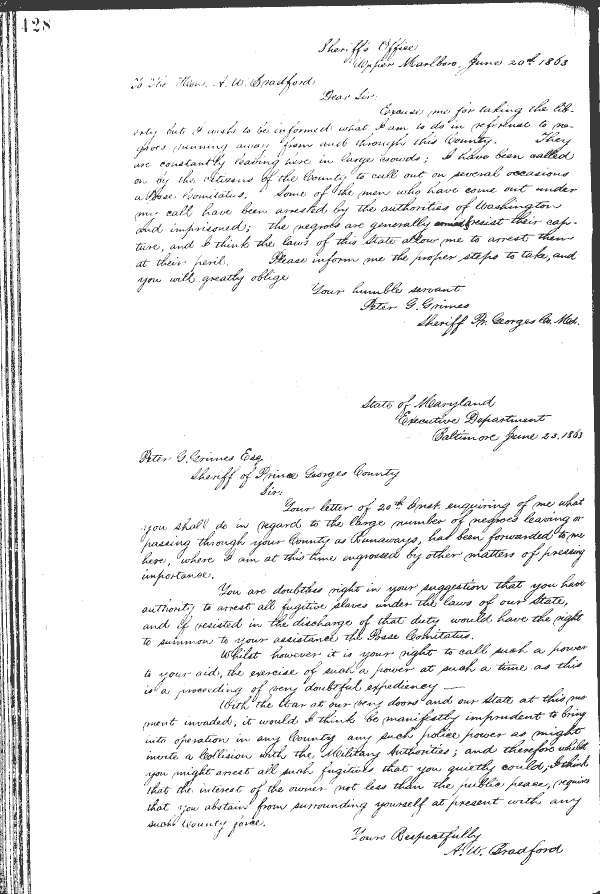 128
Sheriff's Office
Upper Marlboro, June 20th 1863
To The Hon. A. W. Bradford
Dear Sir:
Excuse me for taking the lib-
erty but I wish to be informed what I am to do in reference to ne-
groes running away from and through this County. They
are constantly leaving here in large crowds; I have been called
on by the citizens of the County to call out on several occasions
a Posse Comitatus. Some of the men who have come out under
my call have been arrested by the authorities of Washington
and imprisoned; the negroes are generally resist their cap-
ture, and I think the laws of this State allow me to arrest them
at their peril. Please inform me the proper steps to take, and
you will greatly oblige
Your humble servant
Peter G. Grimes
Sheriff Pr. Georges Co. Md.
State of Maryland
Executive Department
Baltimore June 23, 1863
Peter G. Grimes Esq
Sheriff of Prince Georges County
Sir:
Your letter of 20th Inst. enquiring of me what
you shall do in regard to the large number of negroes leaving or
passing through your County as Runaways, has been forwarded to me
here, where I am at this time engrossed by other matters of pressing
importance.
You are doubtless right in your suggestion that you have
authority to arrest all fugitive slaves under the laws of our State,
and if resisted in the discharge of that duty would have the right
to summon to your assistance the Posse Comitatus.
Whilst however it is your right to call such a power
to your aid, the exercise of such a power at such a time as this
is a proceeding of very doubtful expediency —
With the War at our very doors and our State at this mo-
ment invaded, it would I think be manifestly imprudent to bring
into operation in any County any such police power as might
invite a Collision with the Military Authorities; and therefore whilst
you might arrest all such fugitives that you quietly could, I think
that the interest of the owner not less than the public peace, requires
that you abstain from surrounding yourself at present with any
such County force.
Yours Respectfully
A. W. Bradford